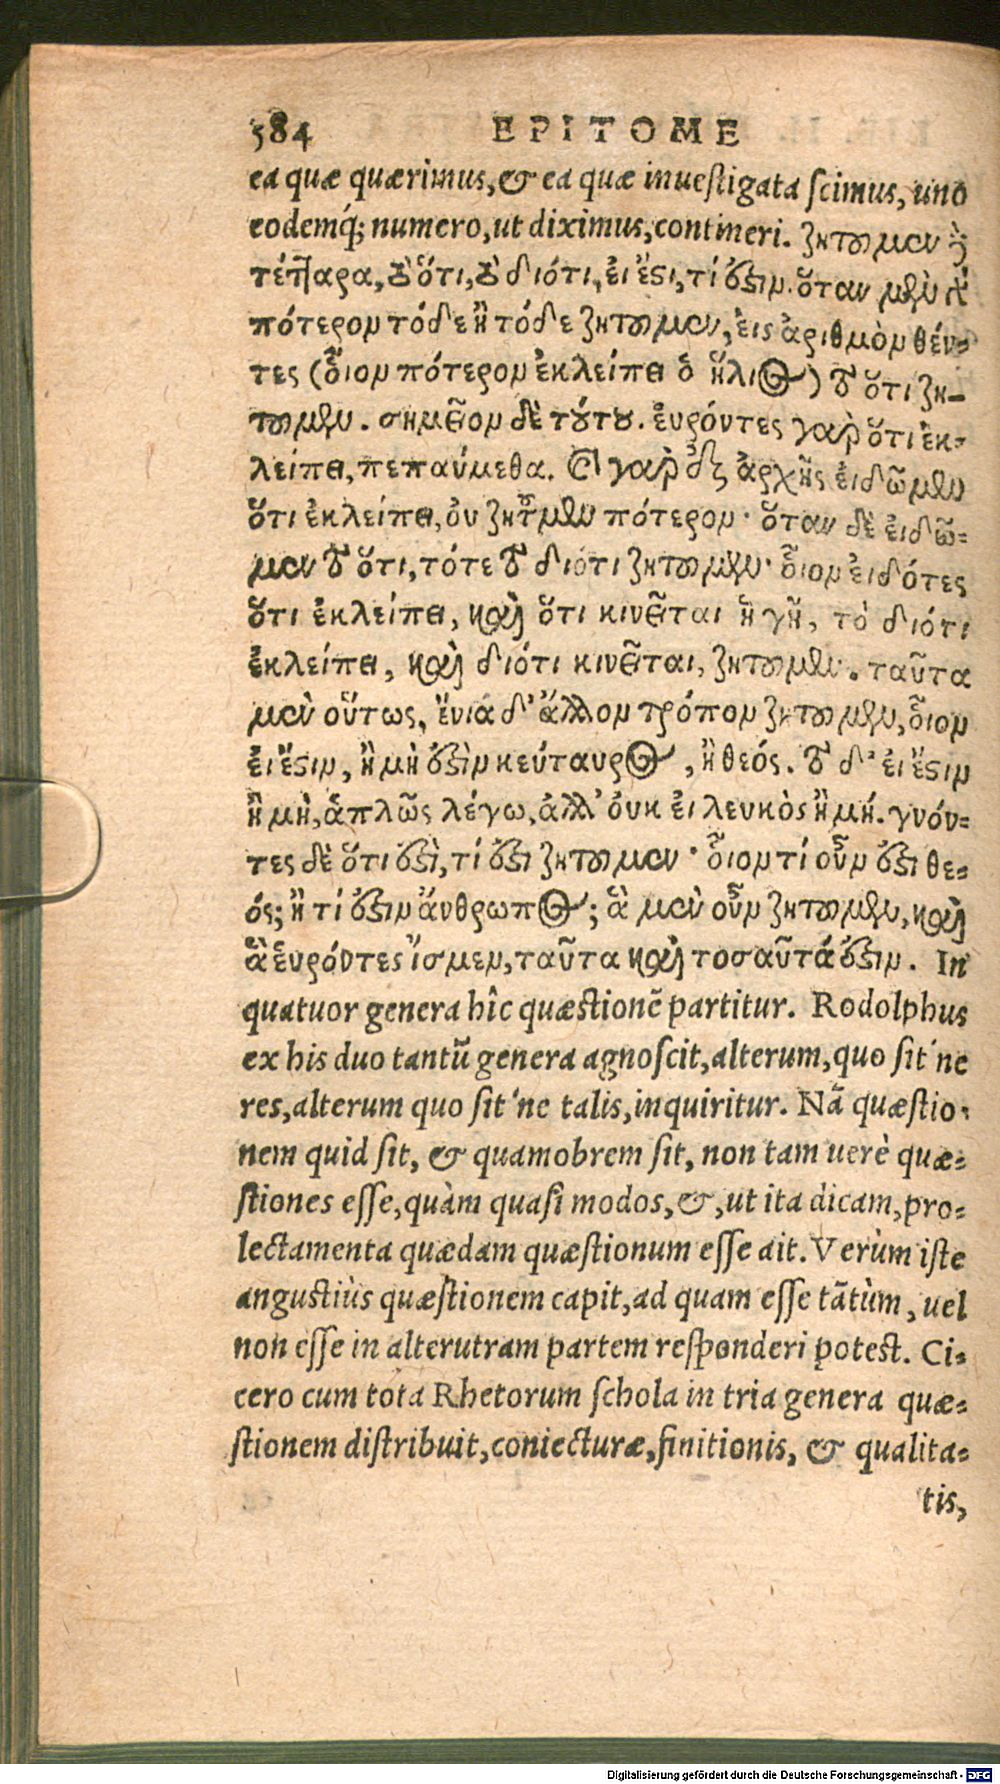 584 EPITOME
ea quæ quærimus, & ea quæ inuestigata scimus, uno
eodemq́; numero, ut diximus, contineri. ζητοῦμεν δὲ
τέτταρα, τὸ ὅτι, τὸ διότι, εἰ ἔστι, τί ἐστιν. ὅταν μὲν γὰρ
πότερον τόδε ἢ τόδε ζητοῦμεν, εἰς ἀριθμὸν θέν-
τες (οἷον πότερον ἐκλείπει ὁ ἥλιος) τὸ ὅτι ζη-
τοῦμεν. σημεῖον δὲ τούτου. εὑρόντες γὰρ ὅτι ἐκ-
λείπει, πεπαύμεθα. εἰ γὰρ ἐξ ἀρχῆς εἰδῶμεν
ὅτι ἐκλείπει, οὐ ζητοῦμεν πότερον· ὅταν δὲ εἰδῶ-
μεν τὸ ὅτι, τότε τὸ διότι ζητοῦμεν· οἷον εἰδότες
ὅτι ἐκλείπει, καὶ ὅτι κινεῖται ἡ γῆ, τὸ διότι
ἐκλείπει, καὶ διότι κινεῖται, ζητοῦμεν. ταῦτα
μὲν οὕτως, ἔνια δ' ἄλλον τρόπον ζητοῦμεν, οἷον
εἰ ἔστιν, ἢ μὴ ἐστὶν κεύταυρος, ἢ θεός. τὸ δ' εἰ ἔστιν
ἢ μὴ, ἁπλῶς λέγω, ἀλλ' οὐκ εἰ λευκὸς ἢ μή. γνόν-
τες δὲ ὅτι ἐστὶ, τί ἐστι ζητοῦμεν· οἷον τί οὖν ἐστι θε-
ός; ἢ τί ἐστιν ἄνθρωπος; ἃ μὲν οὖν ζητοῦμεν, καὶ
ἃ εὑρόντες ἴσμεν, ταῦτα καὶ τοσαῦτά ἐστιν. In
quatuor genera hîc quæstionẽ partitur. Rodolphus
ex his duo tantũ genera agnoscit, alterum, quo sit'ne
res, alterum quo sit'ne talis, inquiritur. Nã quæstio-
nem quid sit, & quamobrem sit, non tam uerè quæ-
stiones esse, quàm quasi modos, &, ut ita dicam, pro-
lectamenta quædam quæstionum esse ait. Verùm iste
angustiùs quæstionem capit, ad quam esse tãtùm, uel
non esse in alterutram partem responderi potest. Ci-
cero cum tota Rhetorum schola in tria genera quæ-
stionem distribuit, coniecturæ, finitionis, & qualita-
tis,
Digitalisierung gefördert durch die Deutsche Forschungsgemeinschaft - DFG